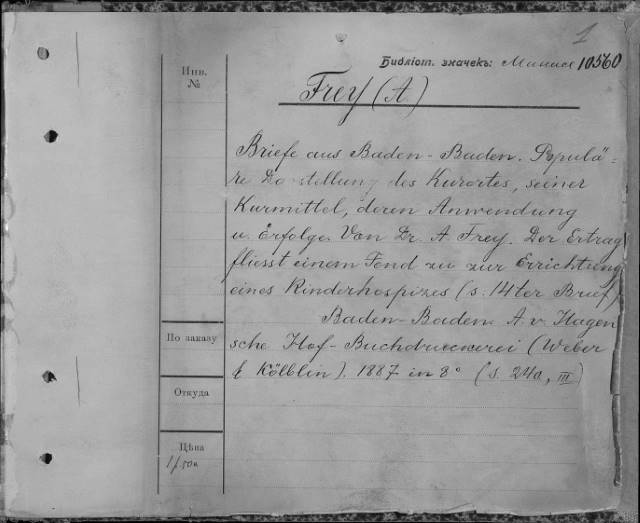 1
Библіот. значекъ: Миних 10560
Инв.
№
Frey (A.)
Briefe aus Baden-Baden. Populä=
re Darstellung des Kurortes, seiner
Kurmittel, deren Anwendung
u. Erfolge. Von Dr. A. Frey. Der Ertrag
fliesst einem Fond zu zur Errichtung
eines Kinderhospizes (s. 14ter Brief)
Baden-Baden. A. v. Hagen
sche Hof-Buchdruckerei (Weber
& Kölblin). 1887 in 8° (S. 240, III)
По заказу
Откуда
Цѣна